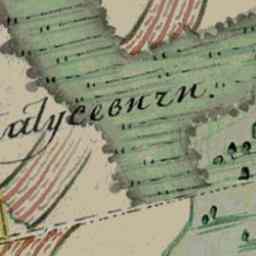 алусевичи.